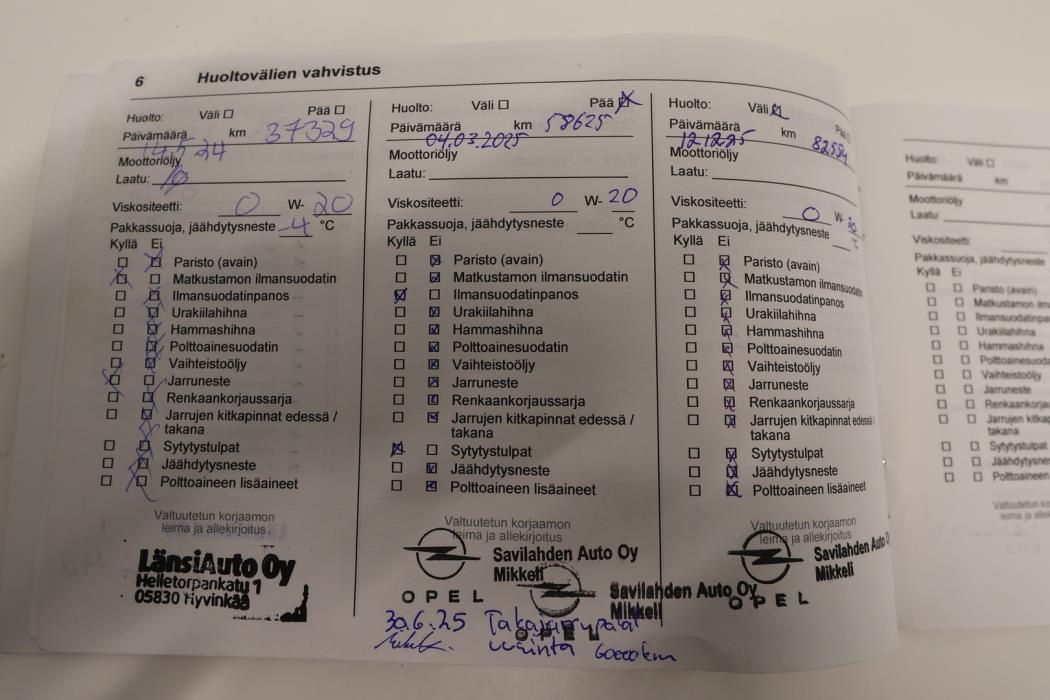 6 Huoltovälien vahvistus
Huolto: Väli Pää
Päivämäärä km 37329
14.5.24
Moottoriöljy
Laatu:
Viskositeetti: 0 W- 20
Pakkassuoja, jäähdytysneste -4 °C
Kyllä Ei
Paristo (avain)
Matkustamon ilmansuodatin
Ilmansuodatinpanos
Urakiilahihna
Hammashihna
Polttoainesuodatin
Vaihteistoöljy
Jarruneste
Renkaankorjaussarja
Jarrujen kitkapinnat edessä /
takana
Sytytystulpat
Jäähdytysneste
Polttoaineen lisäaineet
Valtuutetun korjaamon
leima ja allekirjoitus
LänsiAuto Oy
Helletorpankatu 1
05830 Hyvinkää
Huolto: Väli Pää
Päivämäärä km 58625
04.03.2025
Moottoriöljy
Laatu:
Viskositeetti: 0 W- 20
Pakkassuoja, jäähdytysneste °C
Kyllä Ei
Paristo (avain)
Matkustamon ilmansuodatin
Ilmansuodatinpanos
Urakiilahihna
Hammashihna
Polttoainesuodatin
Vaihteistoöljy
Jarruneste
Renkaankorjaussarja
Jarrujen kitkapinnat edessä /
takana
Sytytystulpat
Jäähdytysneste
Polttoaineen lisäaineet
Valtuutetun korjaamon
leima ja allekirjoitus
Savilahden Auto Oy
Mikkeli
OPEL
Savilahden Auto Oy
Mikkeli
OPEL
30.6.25 Takajarrupalat
uusinta 60000km
Huolto: Väli Pää
Päivämäärä km 82554
12.12.25
Moottoriöljy
Laatu:
Viskositeetti: 0 W-
Pakkassuoja, jäähdytysneste °C
Kyllä Ei
Paristo (avain)
Matkustamon ilmansuodatin
Ilmansuodatinpanos
Urakiilahihna
Hammashihna
Polttoainesuodatin
Vaihteistoöljy
Jarruneste
Renkaankorjaussarja
Jarrujen kitkapinnat edessä /
takana
Sytytystulpat
Jäähdytysneste
Polttoaineen lisäaineet
Valtuutetun korjaamon
leima ja allekirjoitus
Savilahden Auto Oy
Mikkeli
OPEL
Huolto: Väli
Päivämäärä km
Moottoriöljy
Laatu:
Viskositeetti:
Pakkassuoja, jäähdytysneste
Kyllä Ei
Paristo (avain)
Matkustamon
Urakiilahihna
Hammashihna
Vaihteistoöljy
Jarruneste
Jarrujen
takana
Sytytystulpat
Polttoaineen
Valtuutetun
leima ja